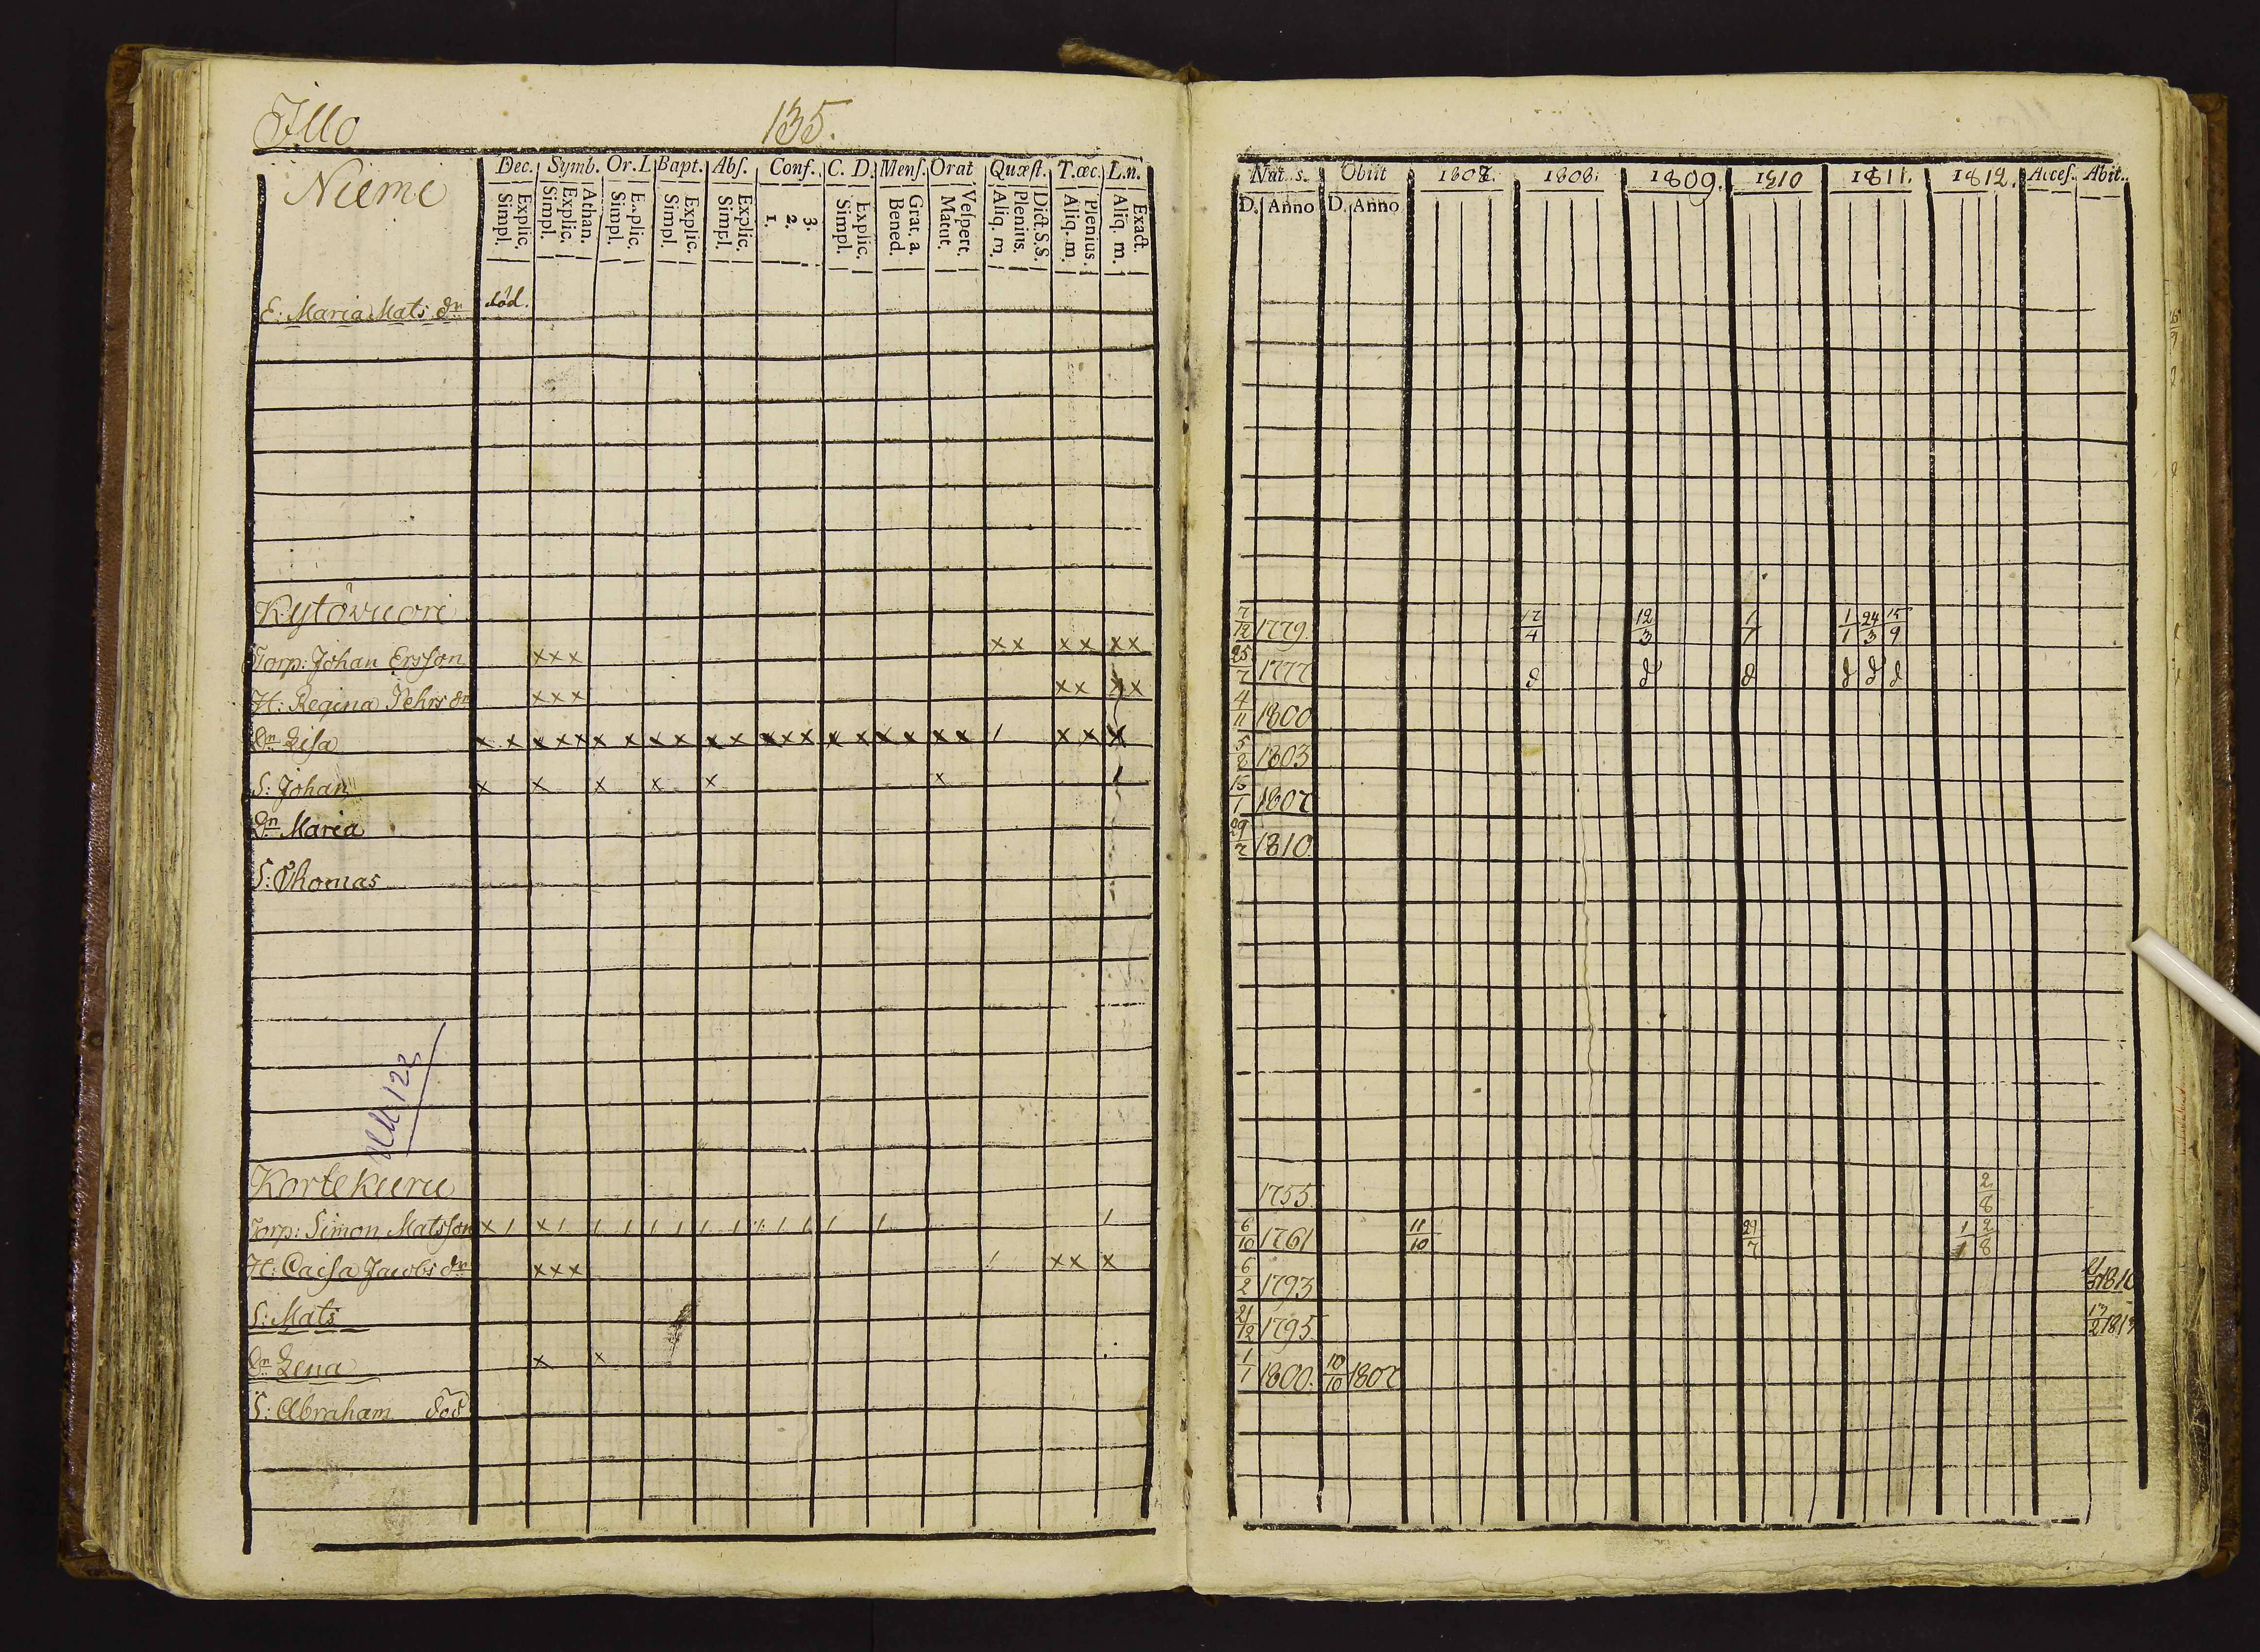 Illo 135.
Niemi
Dec. Symb. Or. L. Bapt. Abſ. Conf. C. D. Menſ. Orat Quæſt. T. œc. L. n.
Simpl. Explic. Simpl. Explic. Athan. Simpl. Explic. Simpl. Explic. Simpl. Explic. 1. 2. 3. Simpl. Explic. Bened. Grat. a. Matut. Veſpert. Aliq. m. Plenius. Dict. S.S. Aliq. m. Plenius. Aliq. m. Exact.
E: Maria Mats dr död.
Kytövuori
Torp: Johan Ersson xxx xx xx xx
H: Regina Pehrs dr xxx xx xx
Dr Lisa x x x x x x x x x x x x x x x x x x x x / x x x
S: Johan x x x x x x /
Dr Maria
S: Thomas
Kortekuru
Torp: Simon Matsson x / x / / / / / / / / / / / / /
H: Caisa Jacobs dr xxx / xx x
S: Mats
Dr Lena x x
S: Abraham död
Nat. s. Obiit 1807. 1808. 1809. 1810 1811. 1812. Acceſ. Abit.
D. Anno D. Anno
7/12 1779. 17/4 12/3 1/7 1/1 24/3 15/9
25/7 1777 d d d d d d
4/11 1800
5/2 1803
15/1 1807
29/7 1810.
1755. 2/8
6/10 1761 11/10 29/7 1/1 2/8
6/2 1793 1810
21/12 1795 17/2 181
1/1 1800. 10/10 1807